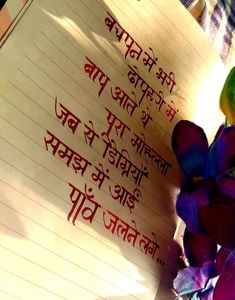 बचपन में भरी
दोपहरी में
नाप आते थे
पूरा मोहल्ला
जब से डिग्रियाँ
समझ में आई
पाँव जलने लगे...